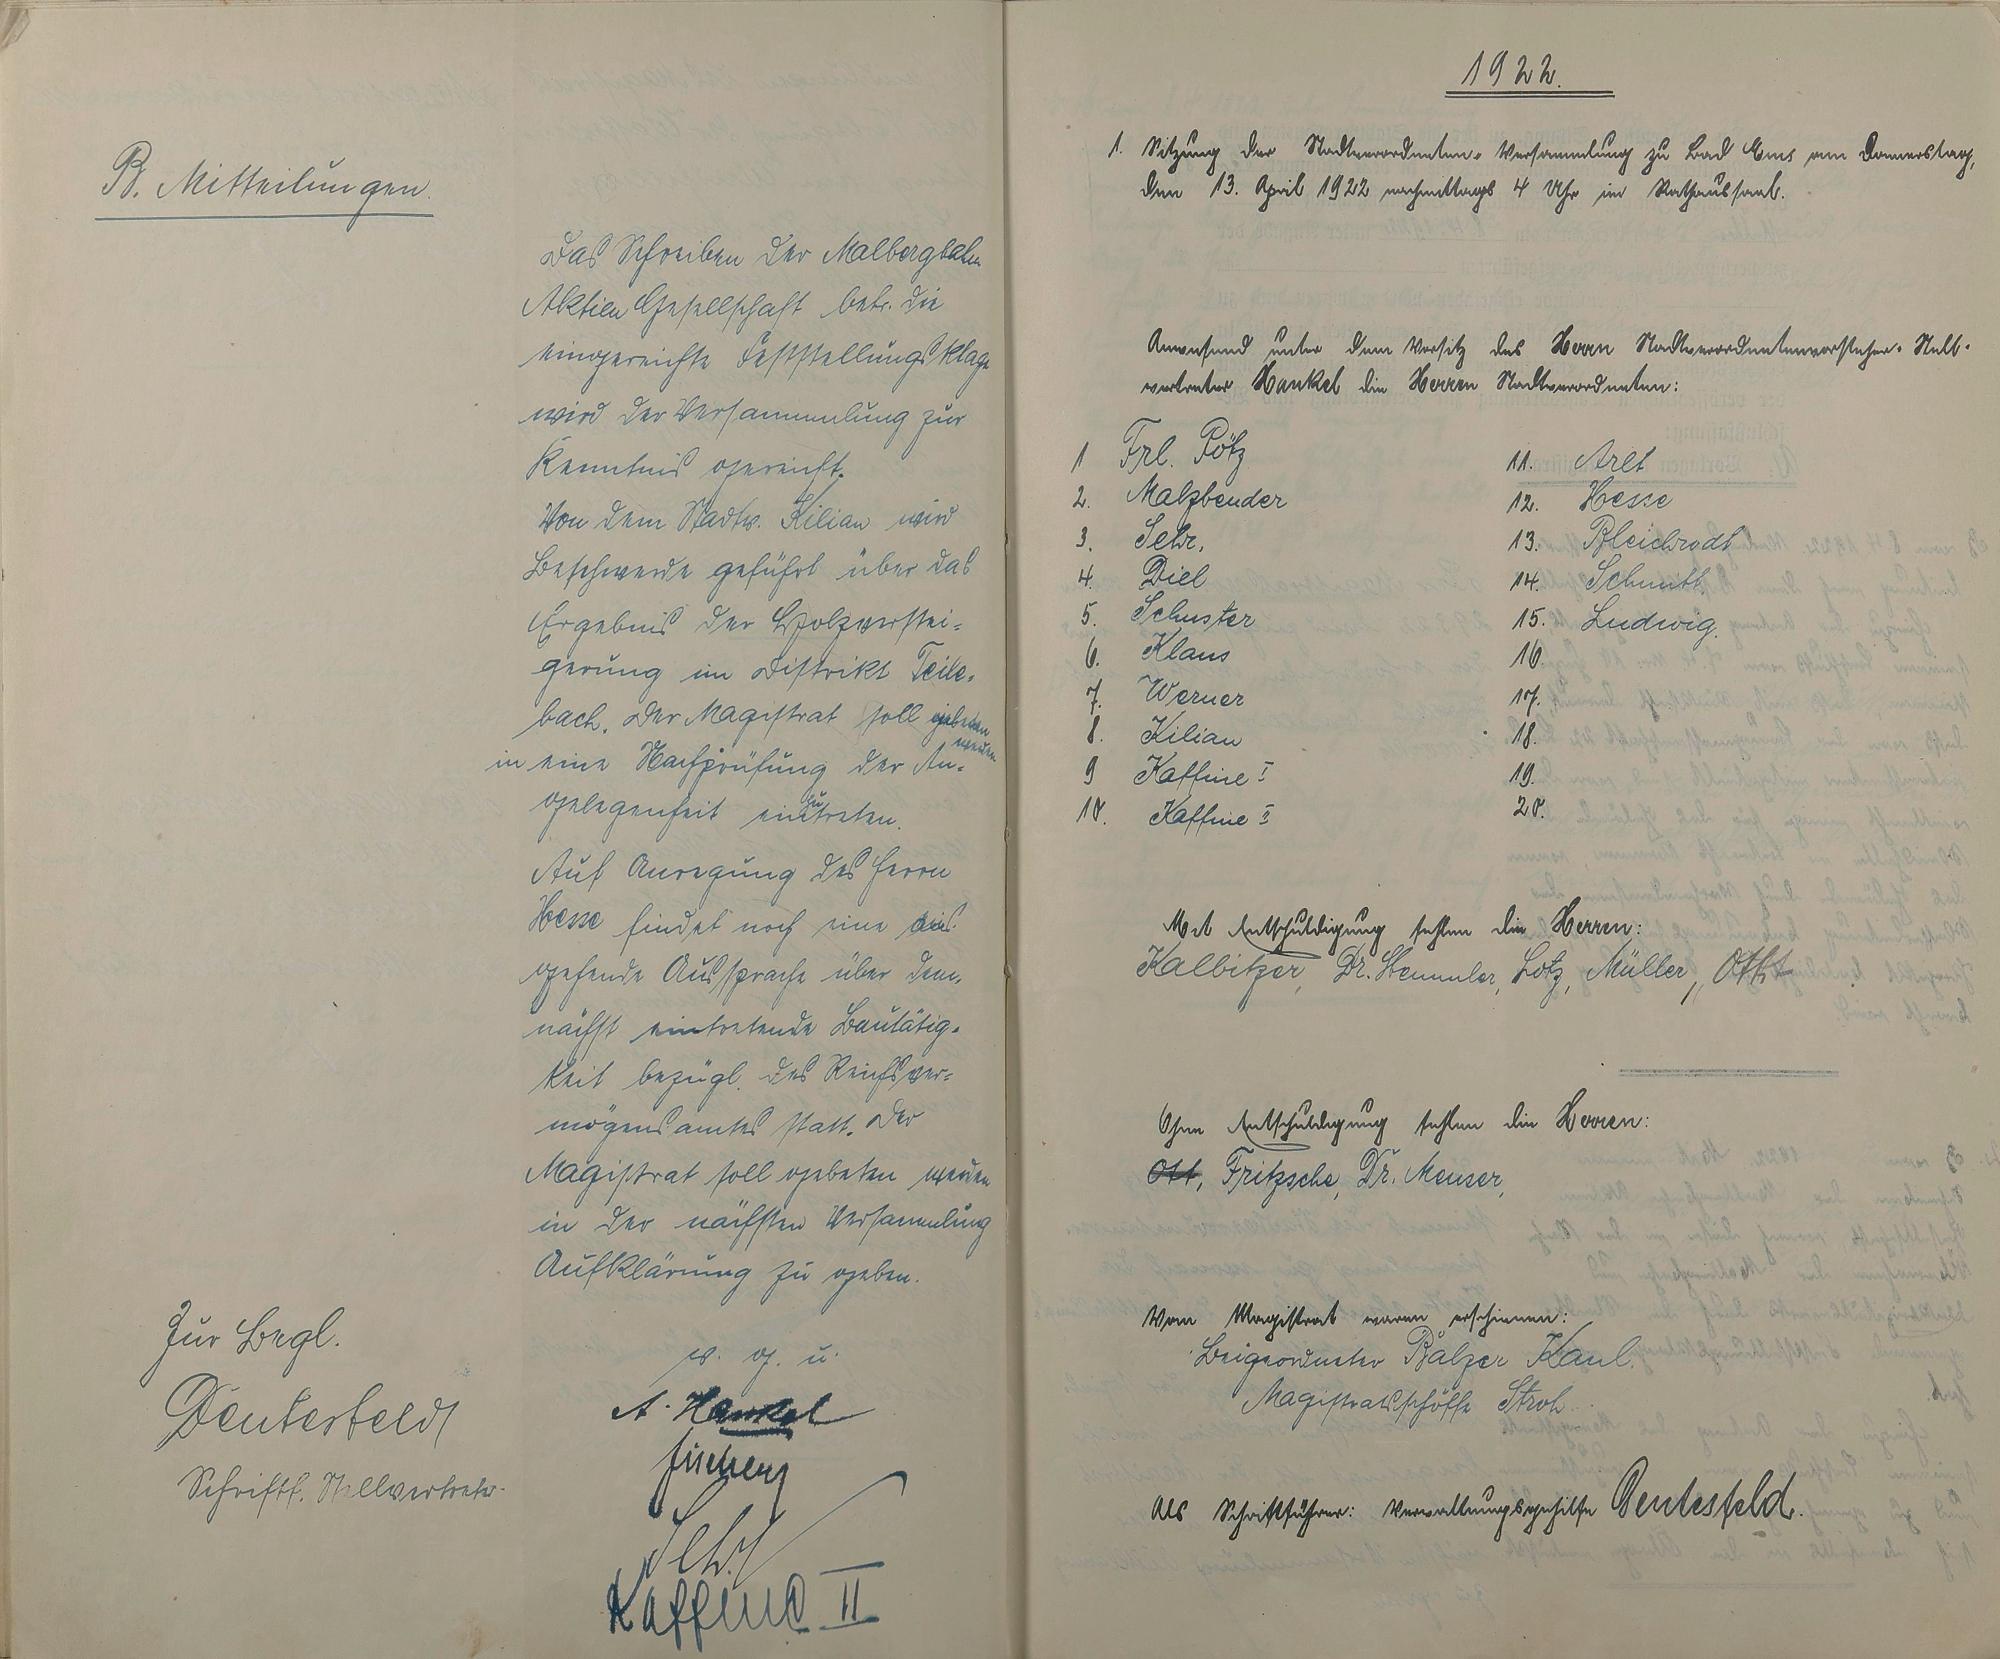 B. Mitteilungen.
Das Schreiben der Malbergbahn
Aktien Gesellschaft betr. die
eingereichte Feststellungsklage
wird der Versammlung zur
Kenntnis gereicht.
Von dem Stadtv. Kilian wird
Beschwerde geführt über das
Ergebnis der Holzverstei-
gerung im Distrikt Teile-
bach. Der Magistrat soll gebeten
werden
in eine Nachprüfung der An-
gelegenheit einzutreten.
Auf Anregung des Herrn
Hesse findet noch eine ein-
gehende Aussprache über dem-
nächst eintretende Bautätig-
keit bezügl. des Reichsver-
mögensamtes statt. Der
Magistrat soll gebeten werden
in der nächsten Versammlung
Aufklärung zu geben.
v. g. u.
A. Hankel
Sehr
Kaffine II
Zur Begl.
Deutesfeld
Schriftf. Stellvertreter.
1922.
1. Sitzung der Stadtverordneten-Versammlung zu Bad Ems am Donnerstag,
den 13. April 1922 nachmittags 4 Uhr im Rathaussaal.
Anwesend unter dem Vorsitz des Herrn Stadtverordnetenvorsteher-Stell-
vertreter Hankel die Herren Stadtverordneten:
1 Frl. Pötz
2. Malzbender
3. Sehr,
4. Diel
5. Schuster
6. Klaus
7. Werner
8. Kilian
9 Kaffine I
10. Kaffine II
11. Arlt
12. Hesse
13. Bleichrodt
14. Schmitt
15. Ludwig.
16.
17.
18.
19.
20.
Mit Entschuldigung fehlten die Herren:
Kalbitzer, Dr. Stemmler, Lotz, Müller, Ott
Ohne Entschuldigung fehlten die Herren:
Ott, Fritzsche, Dr. Meuser,
Vom Magistrat waren erschienen:
Beigeordneter Balzer Kaul.
Magistratsschöffe Stroh
Als Schriftführer: Verwaltungsgehilfe Deutesfeld.